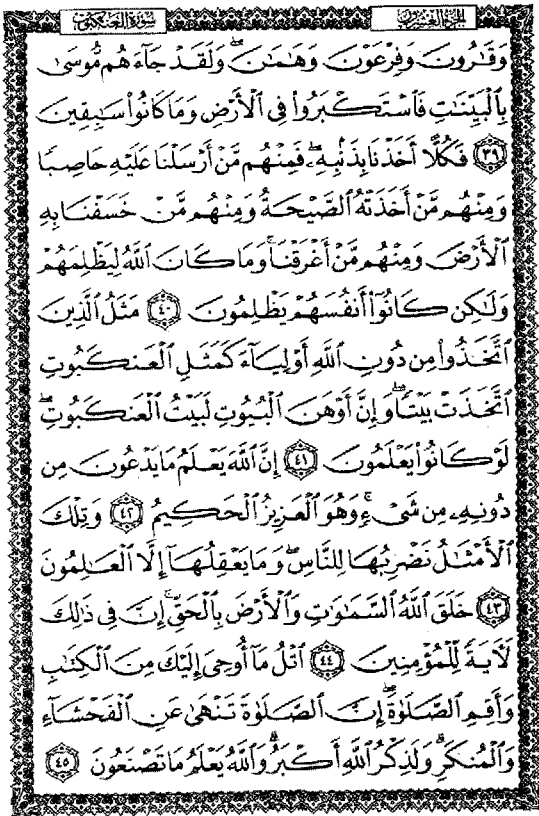 الجزء العشرون
سورة العنكبوت
وَقَٰرُونَ وَفِرْعَوْنَ وَهَٰمَٰنَ ۖ وَلَقَدْ جَآءَهُم مُّوسَىٰ
بِالْبَيِّنَٰتِ فَاسْتَكْبَرُوا۟ فِى الْأَرْضِ وَمَا كَانُوا۟ سَٰبِقِينَ
﴿٣٩﴾ فَكُلًّا أَخَذْنَا بِذَنۢبِهِۦ ۖ فَمِنْهُم مَّنْ أَرْسَلْنَا عَلَيْهِ حَاصِبًا
وَمِنْهُم مَّنْ أَخَذَتْهُ الصَّيْحَةُ وَمِنْهُم مَّنْ خَسَفْنَا بِهِ
الْأَرْضَ وَمِنْهُم مَّنْ أَغْرَقْنَا ۚ وَمَا كَانَ اللَّهُ لِيَظْلِمَهُمْ
وَلَٰكِن كَانُوٓا۟ أَنفُسَهُمْ يَظْلِمُونَ ﴿٤٠﴾ مَثَلُ الَّذِينَ
اتَّخَذُوا۟ مِن دُونِ اللَّهِ أَوْلِيَآءَ كَمَثَلِ الْعَنكَبُوتِ
اتَّخَذَتْ بَيْتًا ۖ وَإِنَّ أَوْهَنَ الْبُيُوتِ لَبَيْتُ الْعَنكَبُوتِ ۖ
لَوْ كَانُوا۟ يَعْلَمُونَ ﴿٤١﴾ إِنَّ اللَّهَ يَعْلَمُ مَا يَدْعُونَ مِن
دُونِهِۦ مِن شَىْءٍ ۚ وَهُوَ الْعَزِيزُ الْحَكِيمُ ﴿٤٢﴾ وَتِلْكَ
الْأَمْثَٰلُ نَضْرِبُهَا لِلنَّاسِ ۖ وَمَا يَعْقِلُهَآ إِلَّا الْعَٰلِمُونَ
﴿٤٣﴾ خَلَقَ اللَّهُ السَّمَٰوَٰتِ وَالْأَرْضَ بِالْحَقِّ ۚ إِنَّ فِى ذَٰلِكَ
لَءَايَةً لِّلْمُؤْمِنِينَ ﴿٤٤﴾ اتْلُ مَآ أُوحِىَ إِلَيْكَ مِنَ الْكِتَٰبِ
وَأَقِمِ الصَّلَوٰةَ ۖ إِنَّ الصَّلَوٰةَ تَنْهَىٰ عَنِ الْفَحْشَآءِ
وَالْمُنكَرِ ۗ وَلَذِكْرُ اللَّهِ أَكْبَرُ ۗ وَاللَّهُ يَعْلَمُ مَا تَصْنَعُونَ ﴿٤٥﴾